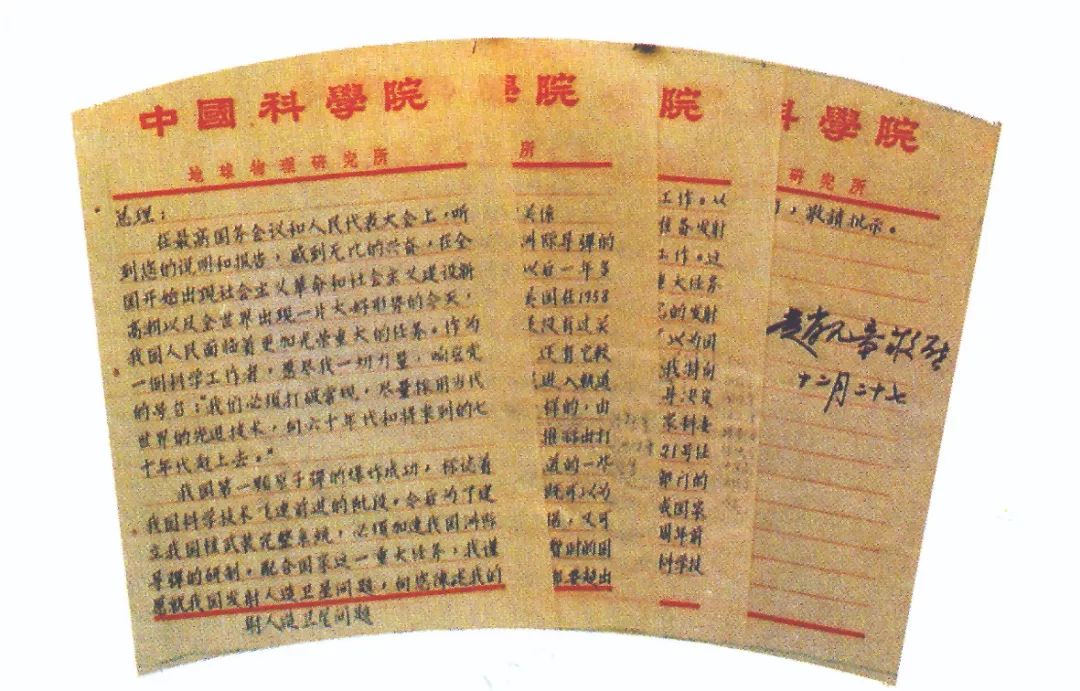 中國科學院
地球物理研究所
总理：
在最高国务会议和人民代表大会上，听
到您的说明和报告，感到无比的兴奋，在全
国开始出现社会主义革命和社会主义建设新
高潮以及全世界出现一片大好形势的今天，
我国人民面临着更加光荣重大的任务。作为
一個科学工作者，愿尽我一切力量，响应党
的号召："我们必须打破常规，尽量採用当代
世界的先进技术，向六十年代和将来到的七
十年代赶上去。"
我国第一颗原子弹的爆炸成功，标誌着
我国科学技术飞速前进的阶段，今后为了建
立我国核武装完整系统，必须加速我国洲际
导弹的研制，配合国家这一重大任务，我谨
就我国发射人造卫星问题，向您陈述我的
射人造卫星问题
院
所
关係
洲际导弹的
以后一年多
美国在1958
没有过关
还有它较
进入軌道
样的，由
推辭出打
道的一步
既可以为
，又可
暂时的困
要超出
院
工作。以
准备发射
工作。这
重大任务
的发射
"以为国
我特向
导决定
家科委
21号
部门的
我国家
周年前
科学技
科學院
研究所
，敬請批示。
赵九章敬上
十二月二十七